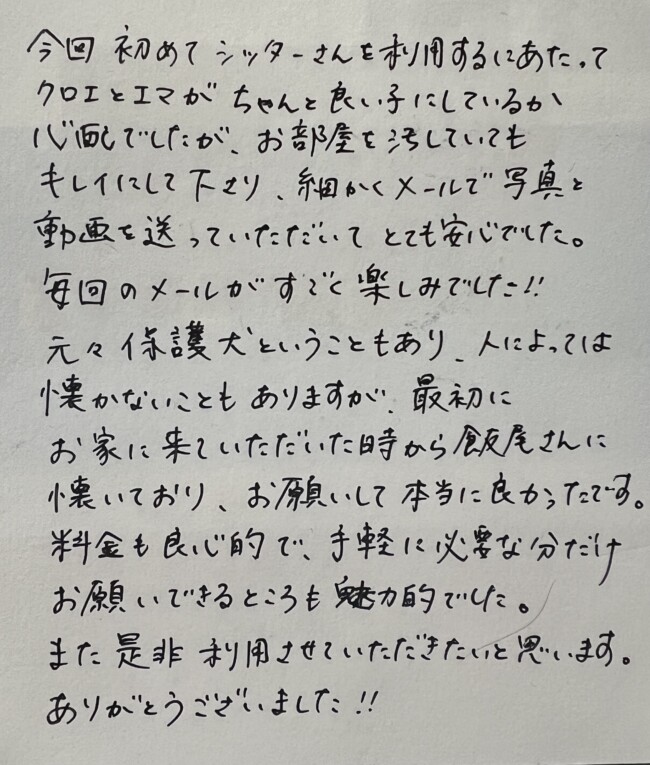 今回 初めて シッターさんを利用するにあたって
クロエとエマが ちゃんと良い子にしているか
心配でしたが、お部屋を汚していても
キレイにして下さり、細かくメールで写真と
動画を送っていただいて とても安心でした。
毎回のメールがすごく楽しみでした!!
元々保護犬ということもあり、人によっては
懐かないことも ありますが、最初に
お家に来ていただいた時から飯尾さんに
懐いており、お願いして本当に良かったです。
料金も良心的で、手軽に必要な分だけ
お願いできるところも魅力的でした。
また是非利用させていただきたいと思います。
ありがとうございました!!